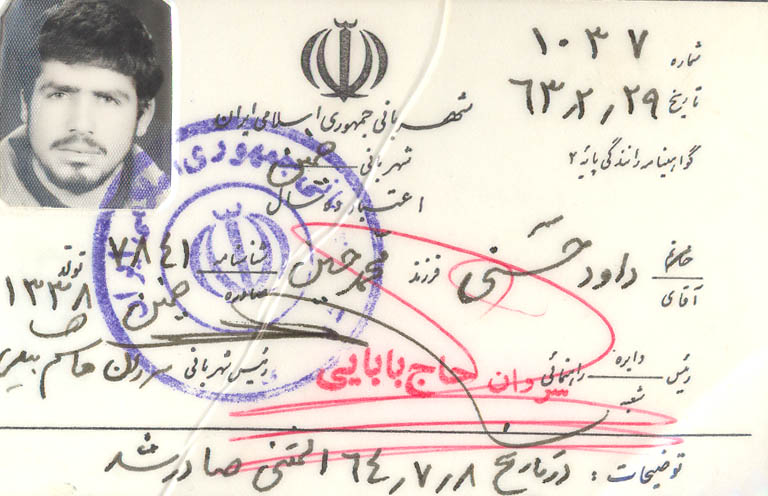 شماره ۱۰۳۷
تاریخ ۶۳/۲/۲۹
شهربانی جمهوری اسلامی ایران
شهربانی خمین
گواهینامه رانندگی پایه ۲
اعتبار ده سال
خانم آقای داود حسنی فرزند محمد حسین شناسنامه ۷۸۴۱
صادره خمین تولد ۱۳۳۸
رئیس دایره شعبه راهنمائی سروان حاج بابایی
رئیس شهربانی سروان
توضیحات : در تاریخ ۶۴/۷/۸ المثنی صادر شد